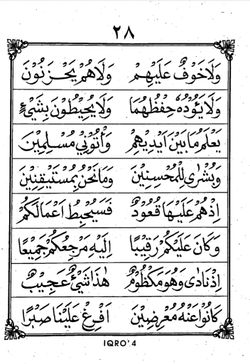 ٢٨
وَلَاخَوْفٌ عَلَيْهِمْ وَلَاهُمْ يَحْزَنُوْنَ
وَلَا يَؤُدُهٗ حِفْظُهُمَا وَلَا يُحِيْطُوْنَ بِشَيْءٍ
يَعْلَمُ مَا بَيْنَ اَيْدِيْهِمْ وَأْتُوْنِيْ مُسْلِمِيْنَ
وَبُشْرٰى لِلْمُحْسِنِيْنَ وَمَانَحْنُ بِمُسْتَيْقِنِيْنَ
اِذْهُمْ عَلَيْهَا قُعُوْدٌ فَسَيُحْبِطُ اَعْمَالَكُمْ
وَكَانَ عَلَيْكُمْ رَقِيْبًا اِلَيْهِ مَرْجِعُكُمْ جَمِيْعًا
اِذْنَادٰى وَهُوَ مَكْظُوْمٌ هٰذَا شَيْءٌ عَجِيْبٌ
كَانُوْا عَنْهُ مُعْرِضِيْنَ اَفْرِغْ عَلَيْنَا صَبْرًا
IQRO' 4